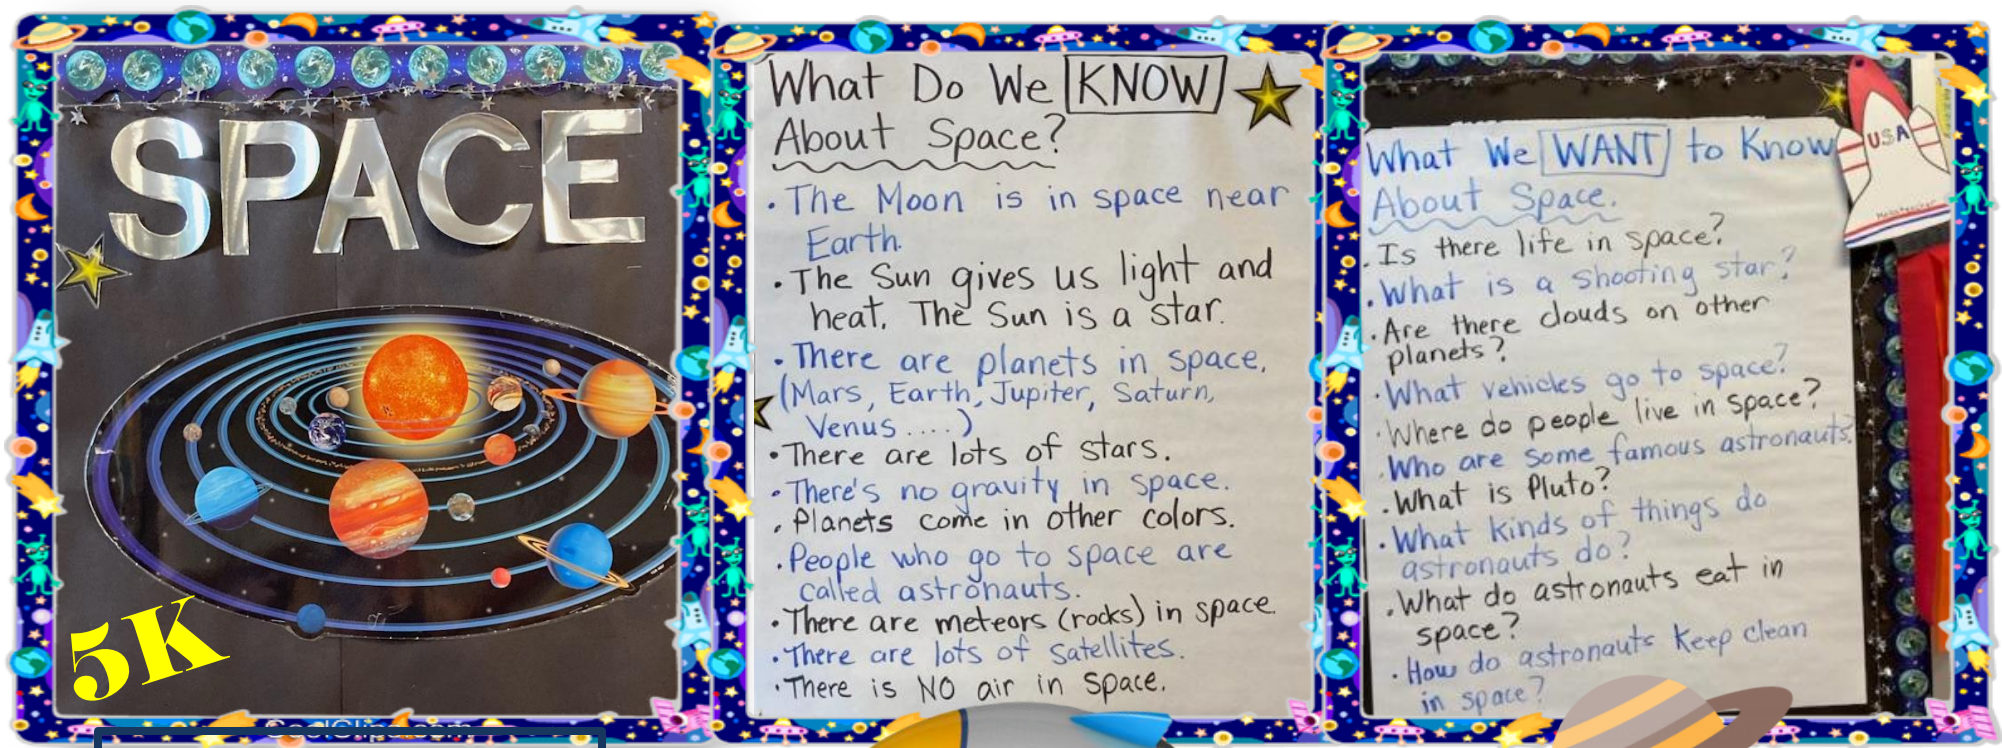 SPACE
5K
CoolClips.com
What Do We KNOW
About Space?
• The Moon is in space near
Earth.
• The Sun gives us light and
heat. The Sun is a star.
• There are planets in space.
(Mars, Earth, Jupiter, Saturn,
Venus ....)
• There are lots of stars.
• There's no gravity in space.
• Planets come in other colors.
• People who go to space are
called astronauts.
• There are meteors (rocks) in space.
• There are lots of satellites.
• There is NO air in space.
USA
What We WANT to Know
About Space.
• Is there life in space?
• What is a shooting star?
• Are there clouds on other
planets?
• What vehicles go to space?
• Where do people live in space?
• Who are some famous astronauts?
• What is Pluto?
• What kinds of things do
astronauts do?
• What do astronauts eat in
space?
• How do astronauts keep clean
in space?